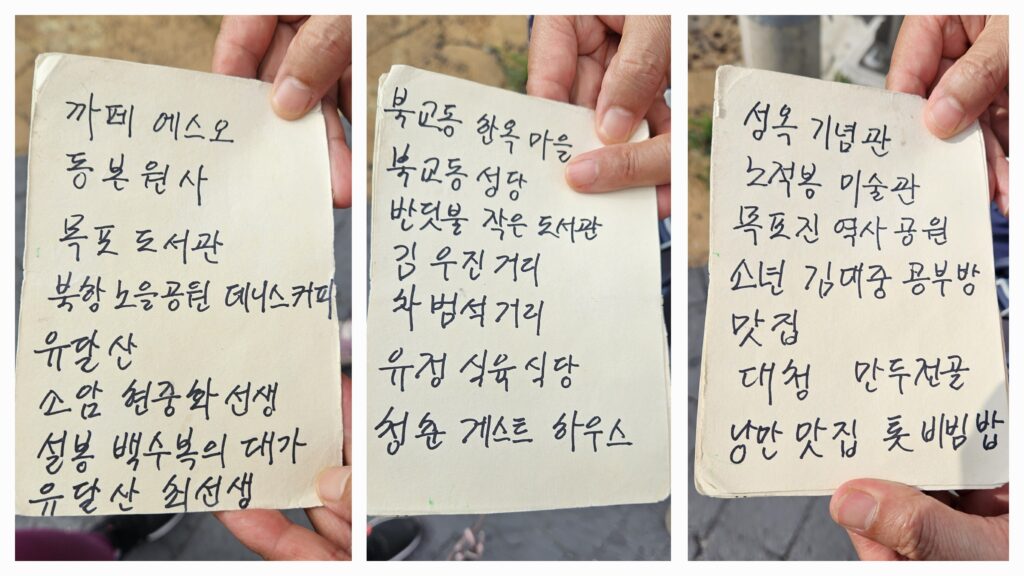 까페 에스오
동본원사
목포 도서관
북항노을공원 데니스커피
유달산
소암 현중화선생
설봉 백수복의 대가
유달산 최선생
북교동 한옥마을
북교동성당
반딧불 작은 도서관
김우진거리
차범석거리
유정식육식당
청춘 게스트 하우스
성옥기념관
노적봉 미술관
목포진 역사공원
소년 김대중 공부방
맛집
대청 만두전골
낭만맛집 톳비빔밥